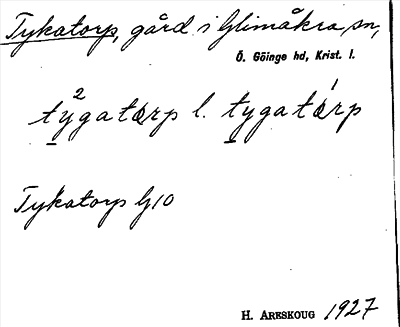 Tykatorp, gård i Glimåkra sn,
Ö. Göinge hd, Krist. l.
tỳgatårp l. tygatárp
Tykatorp G10
H. Areskoug 1927